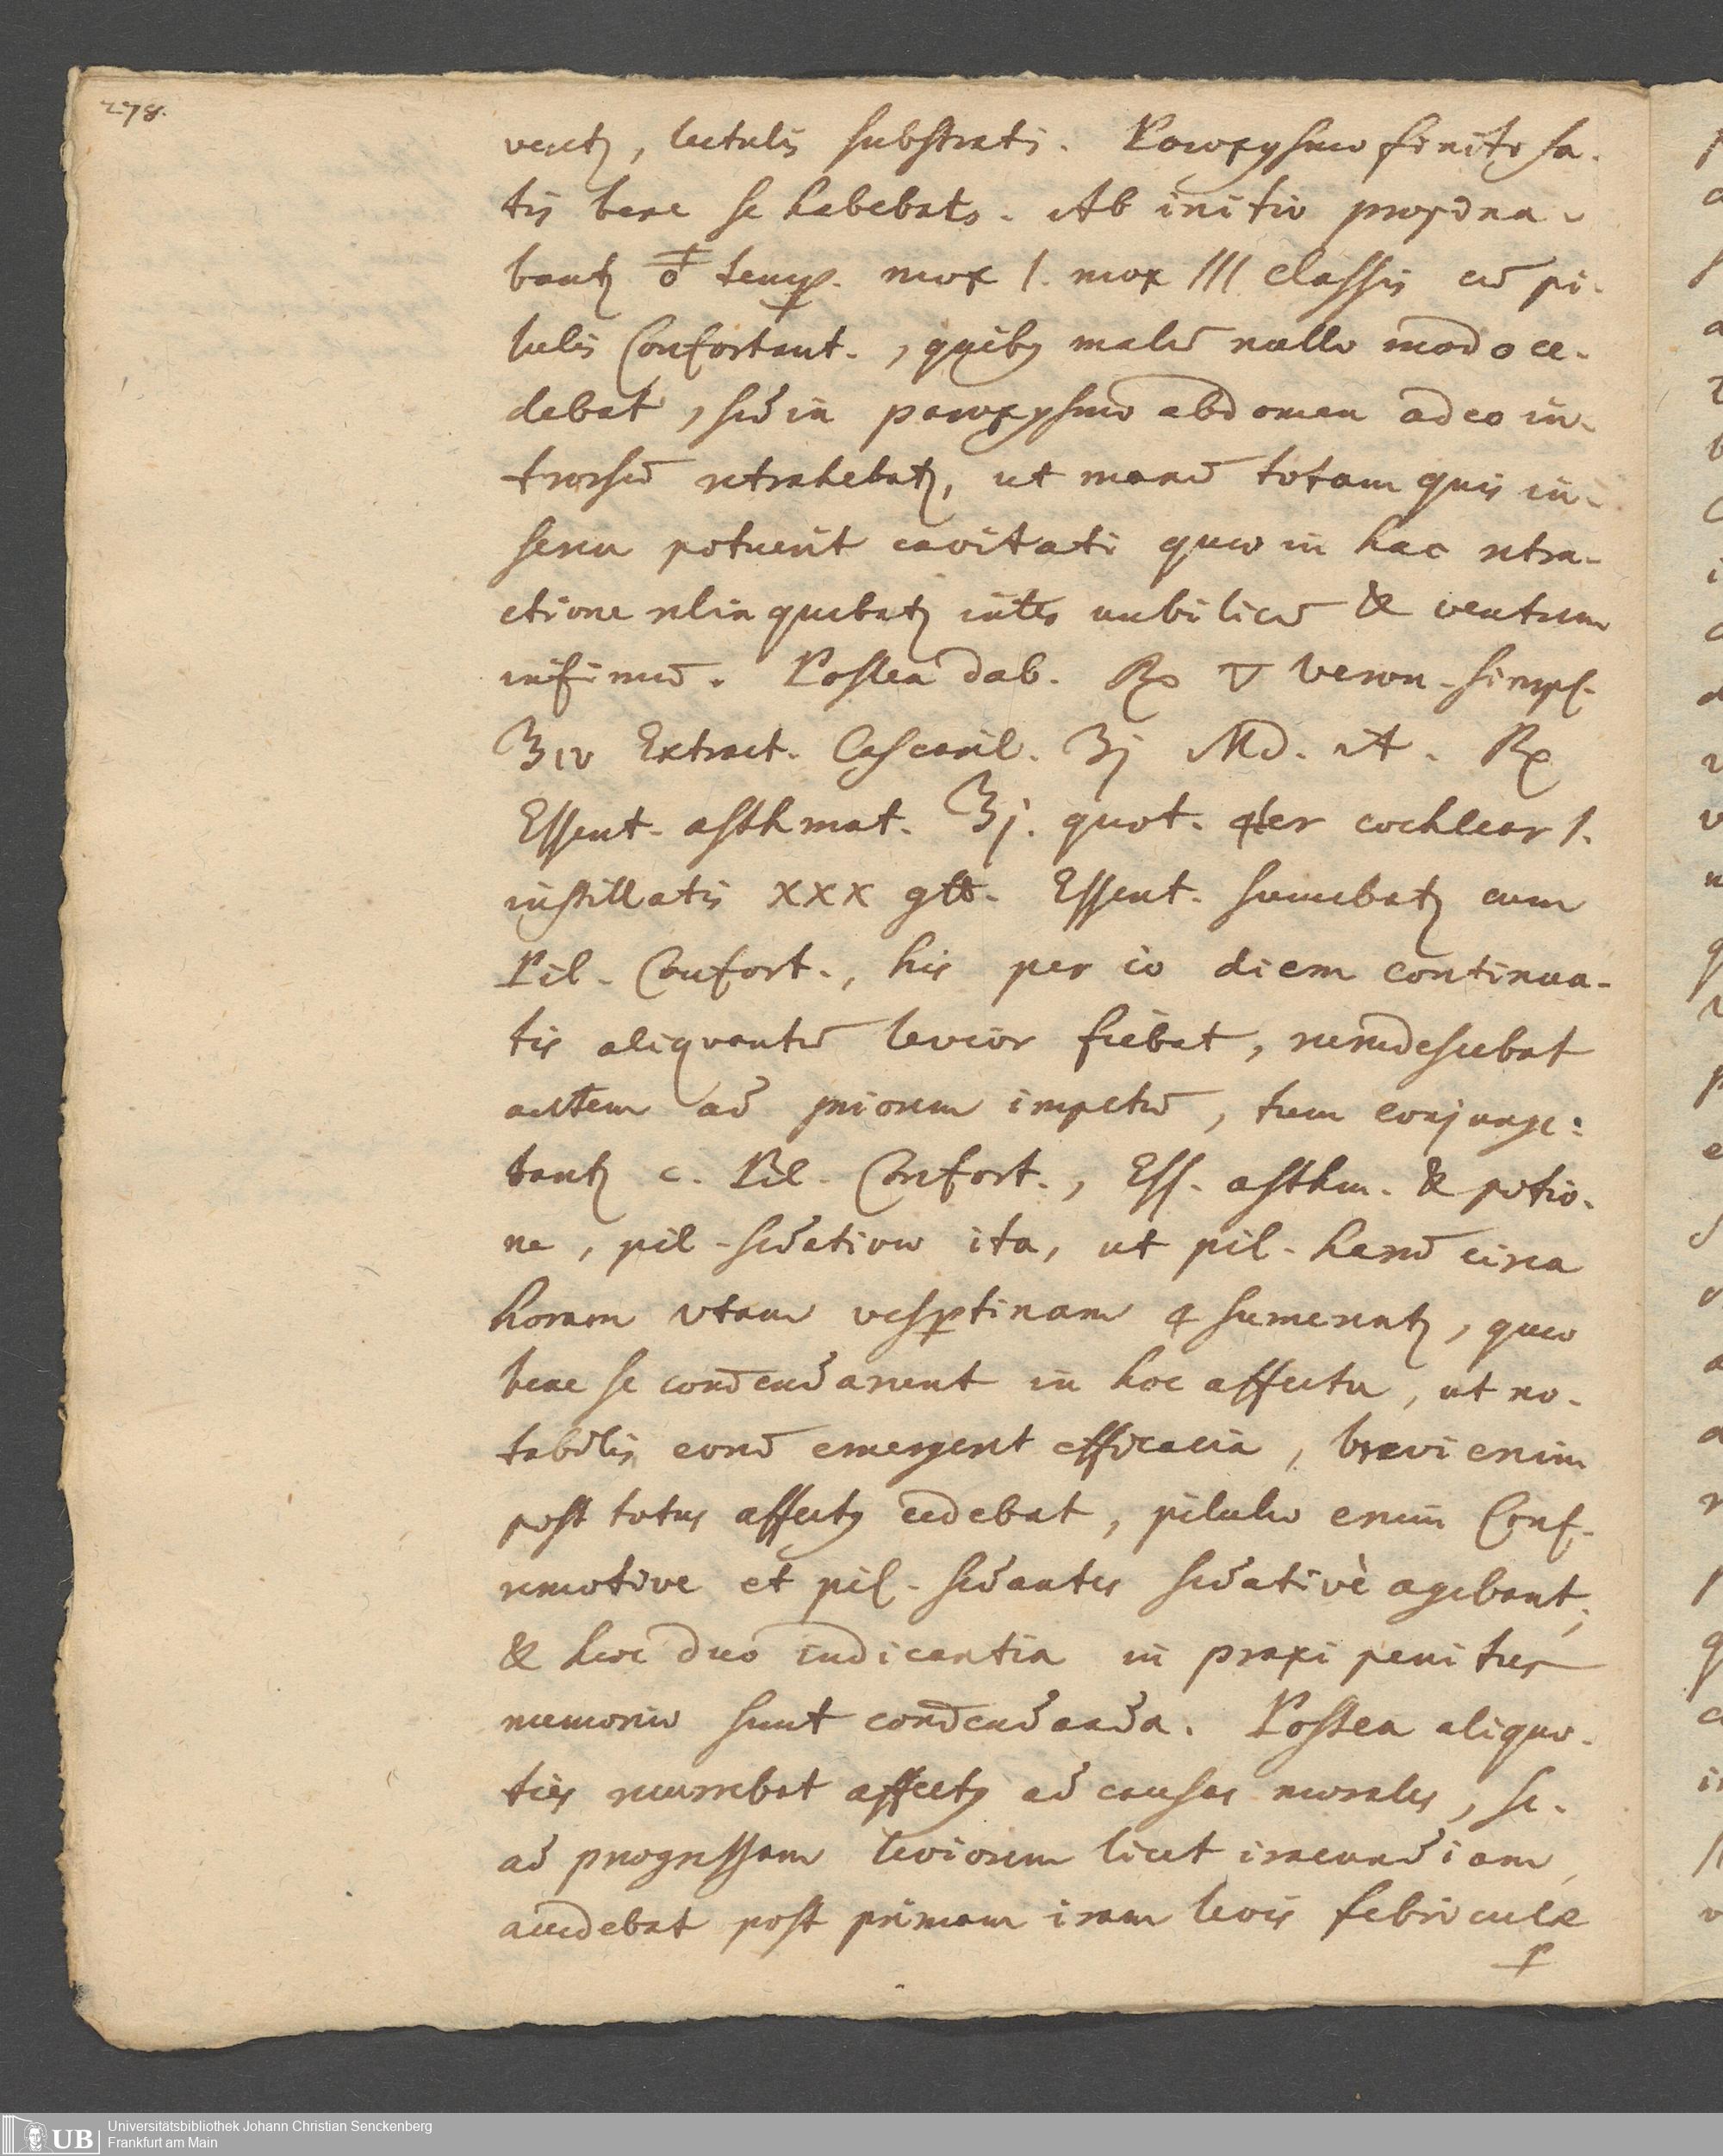 278.
ventꝫ, lectulis substrati. Paroxysmo finito sa-
tis bene se habebat. Ab initio propina-
bantꝫ temp. mox I. mox III classis cū pi-
lulis Confortant., quibꝫ malū nullo modo ce-
debat, sed in paroxysmo abdomen adeo in-
trorsū retrahebatꝫ, ut manū totam quis in-
serere potuerit cavitati quæ in hac retra-
ctione relinquebatꝫ inter umbilicū & ventrem
infimū. Postea dab. ℞ 🜄 Veron. simpl.
℥iv Extract. Cascaril. ʒj MD. A. ℞
Essent. asthmat. ℥j. quot. 4ter cochlear 1.
instillatis XXX gtt. Essent. sumebatꝫ cum
Pil. Confort., his per io diem continua-
tis aliquantū levior fiebat, recrudescebat
autem ad priorem impetū, tum conjunge-
bantꝫ c. Pil. Confort., Ess. asthm. & potio-
ne, pil. sedativæ ita, ut pil. harū circa
horam Vtam vesptinam 4 sumerentꝫ, quæ
bene se com̄endarunt in hoc affectu, ut no-
tabilis eorū emergeret efficacia, brevi enim
post totus affectꝫ cedebat, pilulæ enim Conf.
remotive et pil. sedantes sedativè agebant;
& hæc duo indicantia in praxi penitus
memoriæ sunt com̄endanda. Postea aliquo-
ties recurrebat affectꝫ ad causas morales, sc.
ad progressam leviorem licet iracundiam
accedebat post primam iram levis febriculæ